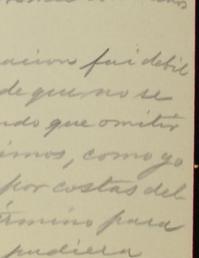 acion fui debil
de que no se
ndo que omitir
imos, como yo
por costas del
érmino para
pudiera